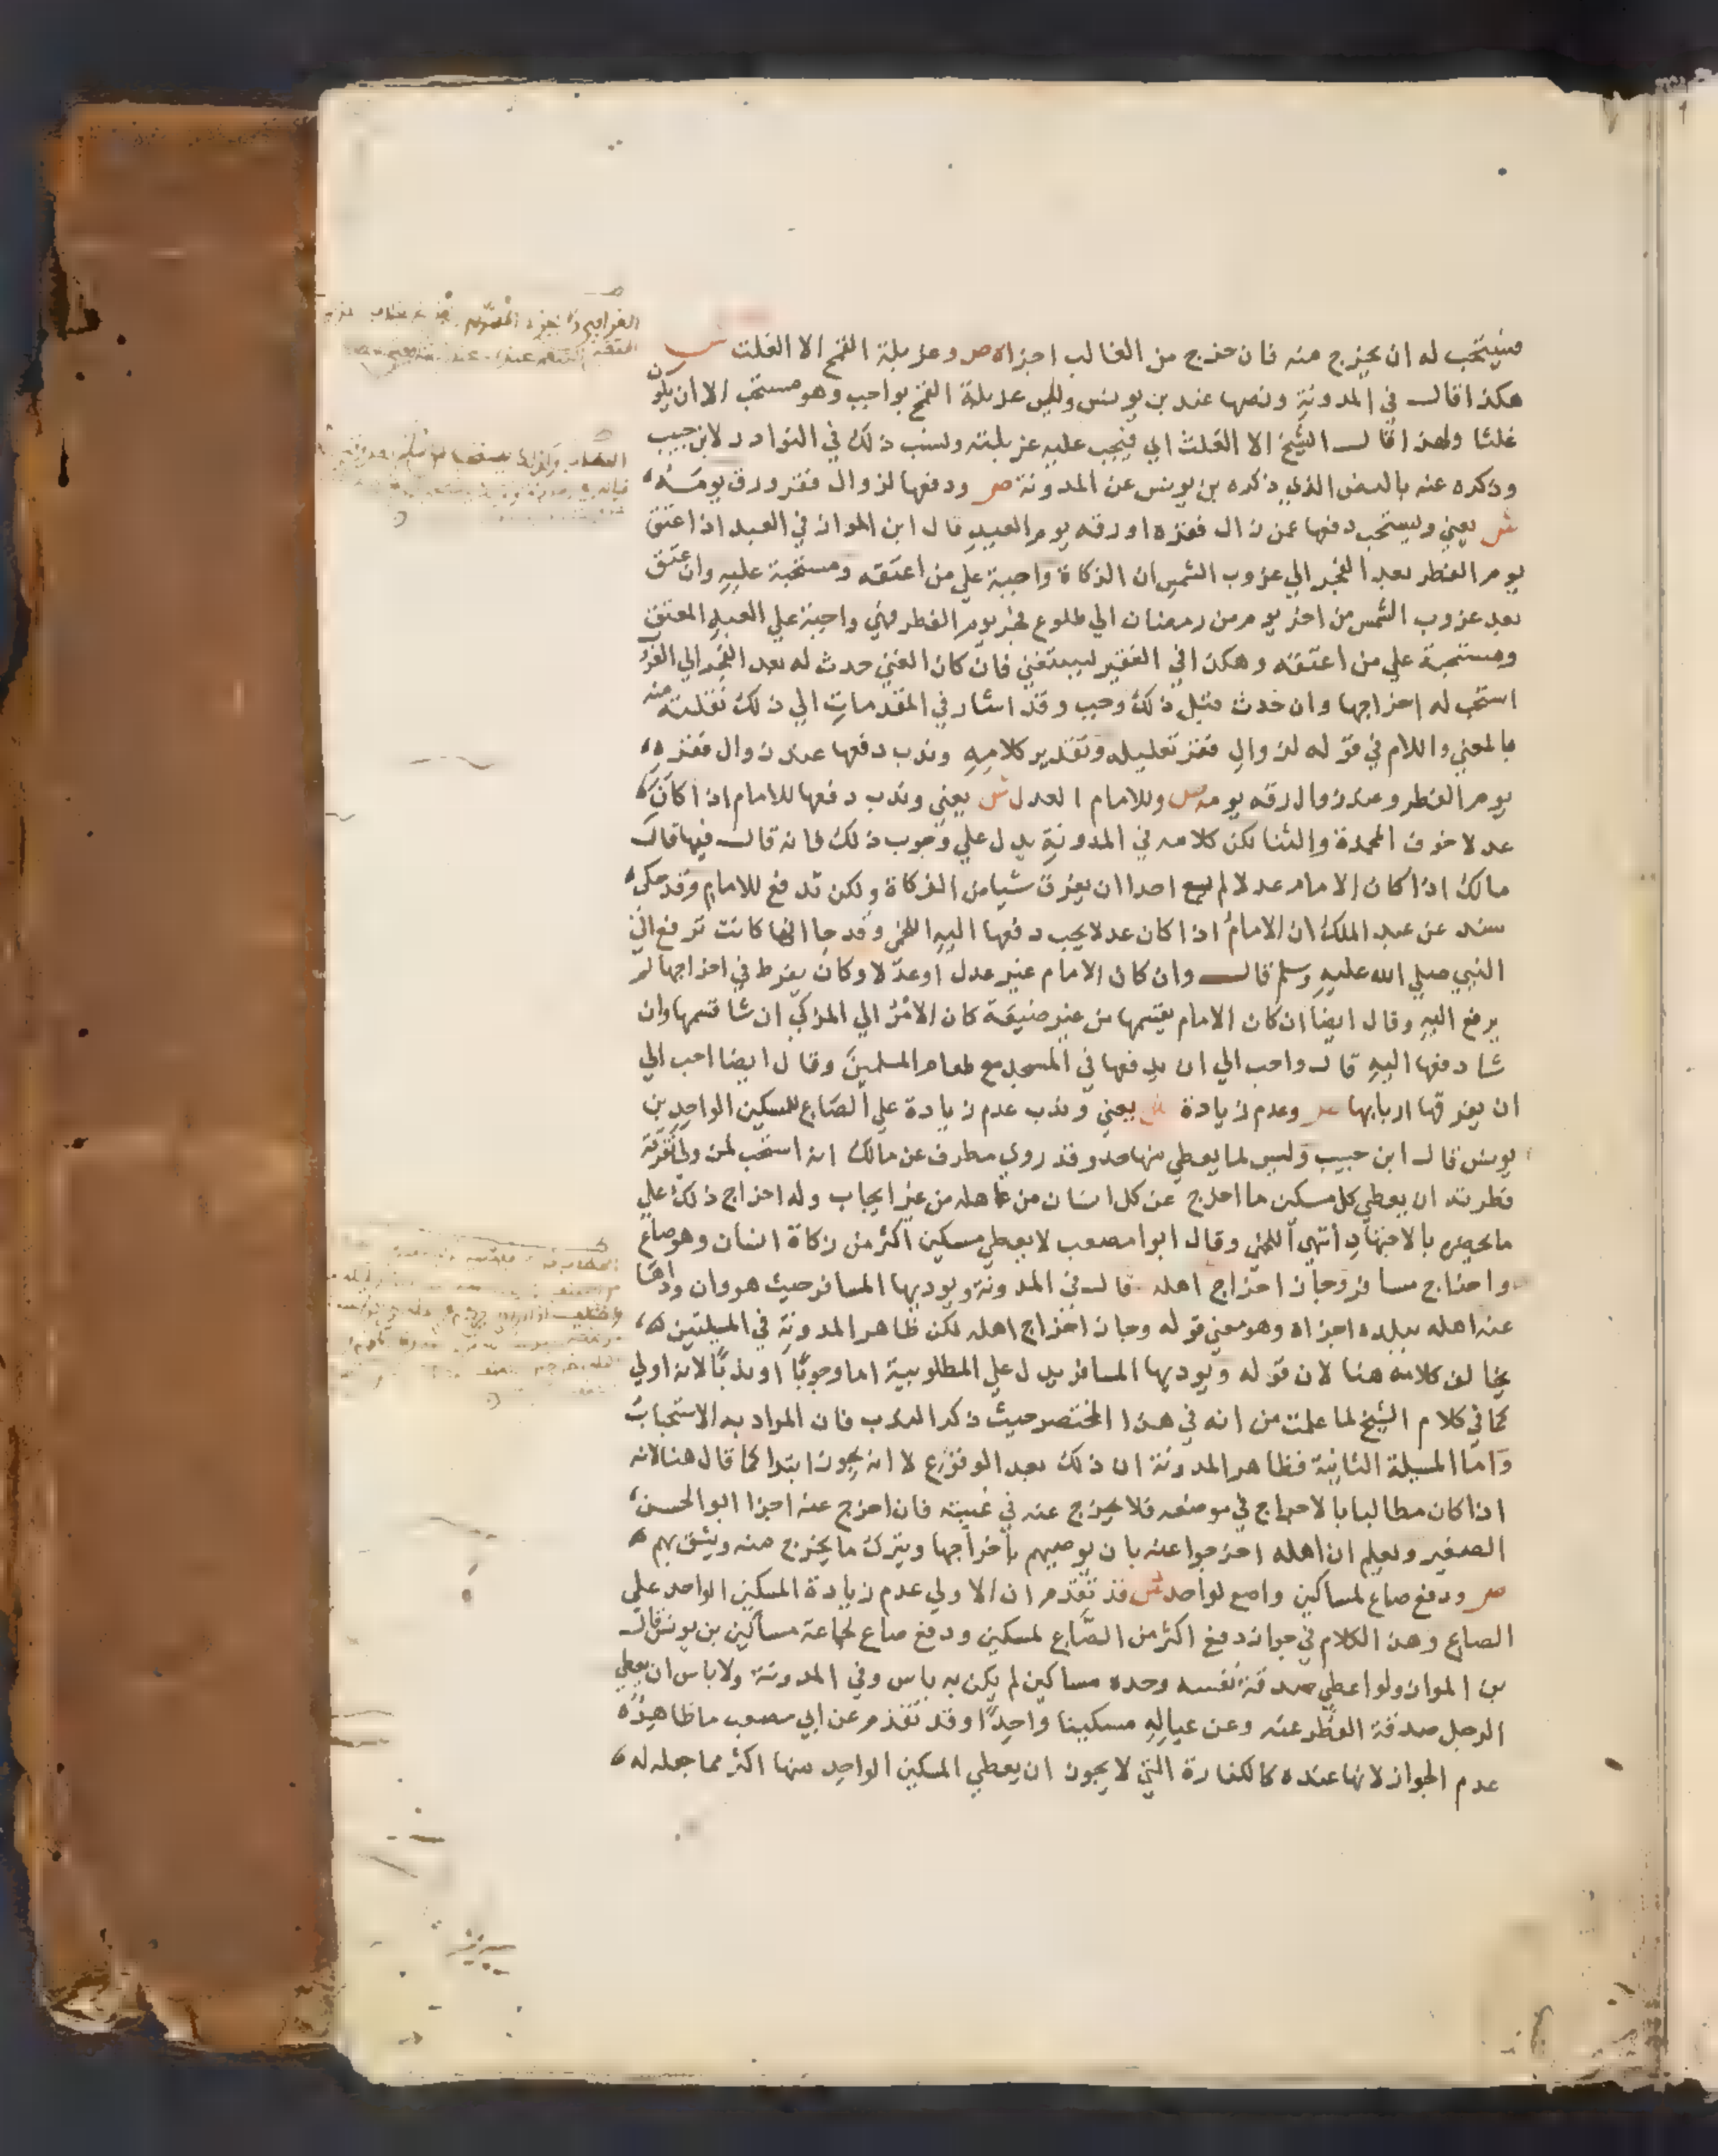 فيستحب له ان يخرج منه فان خرج من الغالب اجزاه ص وغربلة القمح الا الغلث ش
هكذا قال في المدونة ونصها عند بن يونس وليس غربلة القمح بواجب وهو مستحب الا ان يكون
غلثا ولهذا قال الشيخ الا الغلث اي فيجب عليه غربلته ونسب ذلك في النوادر لابن حبيب
وذكره عنه بالنص الذي ذكره بن يونس عن المدونة ص ودفعها لزوال فقر ورق يومه
ش يعني ويستحب دفعها عمن زال فقره او رقه يوم العيد قال ابن المواز في العبد اذا اعتق
يوم الفطر بعد الفجر الي غروب الشمس ان الزكاة واجبة علي من اعتقه ومستحبة عليه وان عتق
بعد غروب الشمس من اخر يوم من رمضان الي طلوع فجر يوم الفطر فهي واجبة علي العبد المعتق
ومستحبة علي من اعتقه وهكذا في الفقير ليستغني فان كان الغني حدث له بعد الفجر الي الغروب
استحب له اخراجها وان حدث قبل ذلك وجب وقد اشار في المقدمات الي ذلك نقلته منه
بالمعني واللام في قوله لزوال فقر تعليله وتقدير كلامه وندب دفعها عند زوال فقره
يوم الفطر وعند زوال رقه يومه ص وللامام العدل ش يعني وندب دفعها للامام اذا كان
عدلا خوف المحمدة والثنا لكن كلامه في المدونة يدل علي وجوب ذلك فانه قال فيها قال
مالك اذا كان الامام عدلا لم يسع احدا ان يفرق شيا من الزكاة ولكن تدفع للامام وقد حكي
سند عن عبد الملك ان الامام اذا كان عدلا يجب دفعها اليه اللخمي وقد جا انها كانت ترفع الي
النبي صلي الله عليه وسلم قال وان كان الامام غير عدل او عدلا وكان يفرط في اخراجها لم
يرفع اليه وقال ايضا ان كان الامام يقسمها من غير ضيعة كان الامر الي المزكي ان شا قسمها وان
شا دفعها اليه قال واحب الي ان يدفعها في المسجد مع طعام المسلمين وقال ايضا احب الي
ان يفرقها اربابها ص وعدم زيادة ش يعني وندب عدم زيادة علي الصاع للمسكين الواحد بن
يونس قال ابن حبيب وليس لما يعطي منها حد وقد روي مطرف عن مالك انه استحب لمن ولي تفرقة
فطرته ان يعطي كل مسكين ما اخرج عن كل انسان من اهله من غير ايجاب وله اخراج ذلك علي
ما يحضره بالاجتهاد انتهي اللخمي وقال ابوا مصعب لا يعطي مسكين اكثر من زكاة انسان وهو صاع
واخراج مسافر وجاز اخراج اهله قال في المدونة ويوديها المسافر حيث هو وان ودها
عنه اهله ببلده اجزاه وهو معني قوله وجاز اخراج اهله لكن ظاهر المدونة في المسيلتين
يخالف كلامه هنا لان قوله ويوديها المسافر يدل علي المطلوبية اما وجوبا او ندبا لانه اولي
كما في كلام الشيخ لما علمت من انه في هذا المختصر حيث ذكر الندب فان المراد به الاستحباب
واما المسيلة الثانية فظاهر المدونة ان ذلك بعد الوقوع لا انه يجوز ابتدا كما قال هنا لانه
اذا كان مطالبا بالاخراج في موضعه فلا يخرج عنه في غيبته فان اخرج عنه اجزا ابو الحسن
الصغير ويعلم ان اهله اخرجوا عنه بان يوصيهم باخراجها ويترك ما يخرج منه ويثق بهم
ص ودفع صاع لمساكين واصع لواحد ش قد تقدم ان الاولي عدم زيادة المسكين الواحد علي
الصاع وهذا الكلام في جواز دفع اكثر من الصاع لمسكين ودفع صاع لجماعة مساكين بن يونس قال
بن المواز ولو اعطي صدقة نفسه وحده مساكين لم يكن به باس وفي المدونة ولا باس ان يعطي
الرجل صدقة الفطر عنه وعن عياله مسكينا واحدا وقد تقدم عن ابي مصعب ما ظاهره
عدم الجواز لانها عنده كالكفارة التي لا يجوز ان يعطي المسكين الواحد منها اكثر مما جعله له